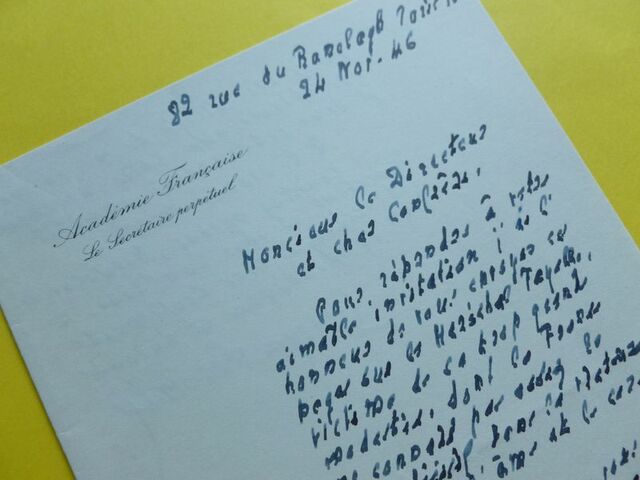 82 rue du Ranelagh Paris
24 Nov. 46
Académie Française
Le Secrétaire perpétuel
Monsieur le Directeur
et cher Confrère,
Pour répondre à votre
aimable invitation j'ai l'
honneur de vous envoyer ces
pages sur le Maréchal Fayolle,
victime de sa trop grande
modestie, dont la France
ne connaît pas assez le
dans la
âme et le